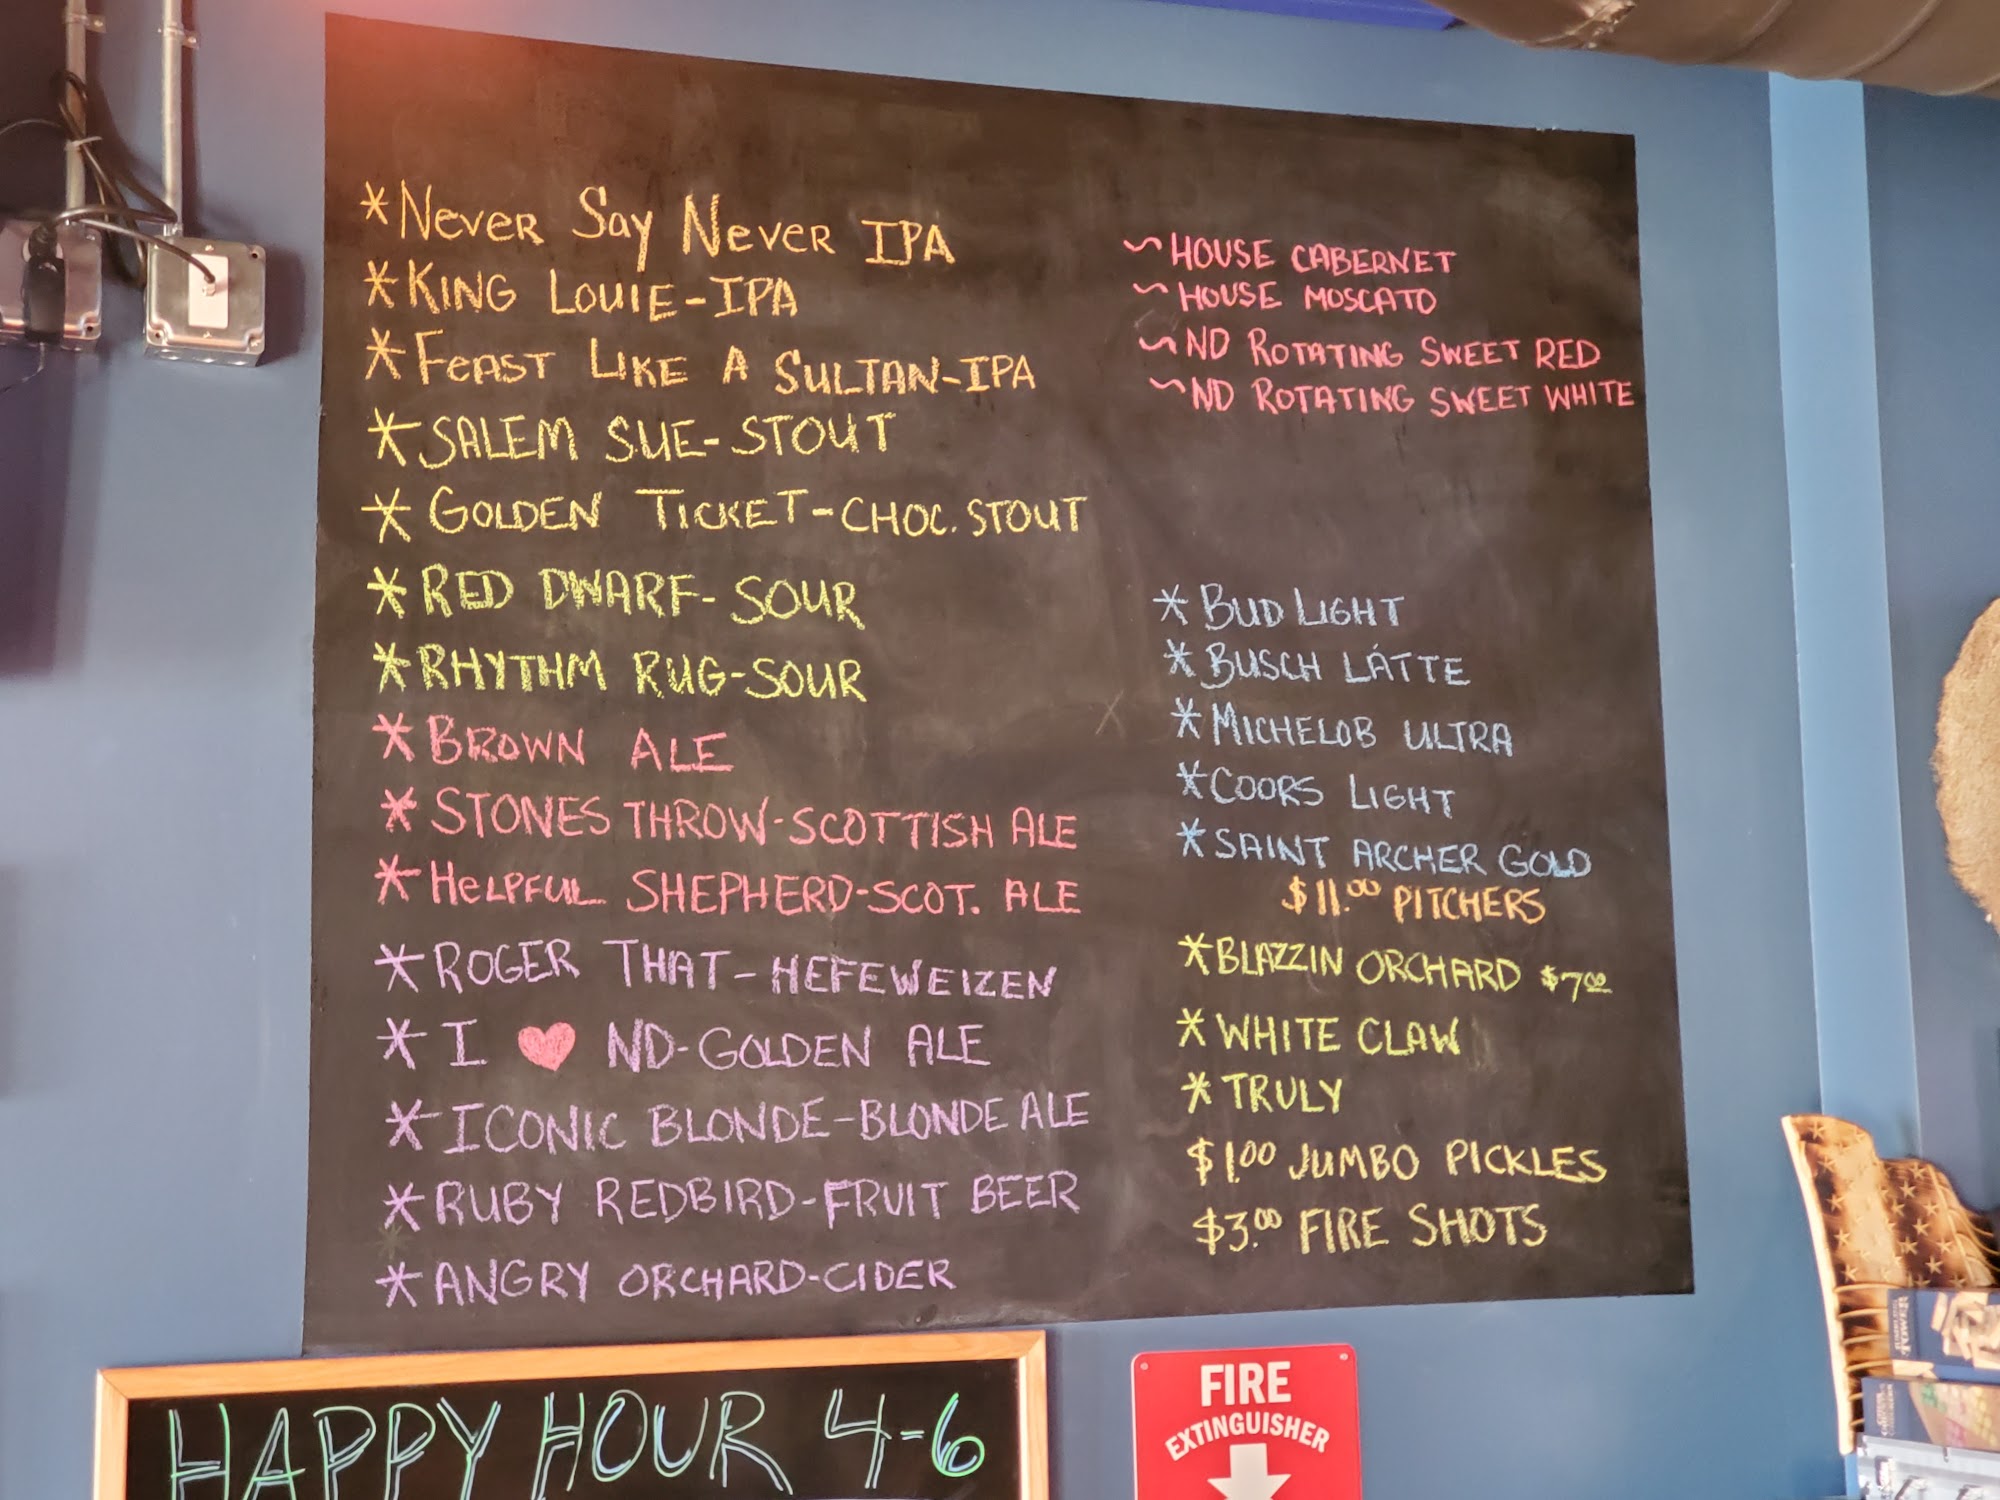 *Never Say Never IPA
*King Louie-IPA
*Feast Like A Sultan-IPA
*SALEM SUE-STOUT
*GOLDEN TICKET-CHOC. STOUT
*RED DWARF-SOUR
*RHYTHM RUG-SOUR
*BROWN ALE
*STONES THROW-SCOTTISH ALE
*HELPFUL SHEPHERD-SCOT. ALE
*ROGER THAT-HEFEWEIZEN
*I ♥ ND-GOLDEN ALE
*ICONIC BLONDE-BLONDE ALE
*RUBY REDBIRD-FRUIT BEER
*ANGRY ORCHARD-CIDER
~HOUSE CABERNET
~HOUSE MOSCATO
~ND ROTATING SWEET RED
~ND ROTATING SWEET WHITE
*BUD LIGHT
*BUSCH LÁTTE
*MICHELOB ULTRA
*COORS LIGHT
*SAINT ARCHER GOLD
$11.00 PITCHERS
*BLAZZIN ORCHARD $7.00
*WHITE CLAW
*TRULY
$1.00 JUMBO PICKLES
$3.00 FIRE SHOTS
HAPPY HOUR 4-6
FIRE
EXTINGUISHER